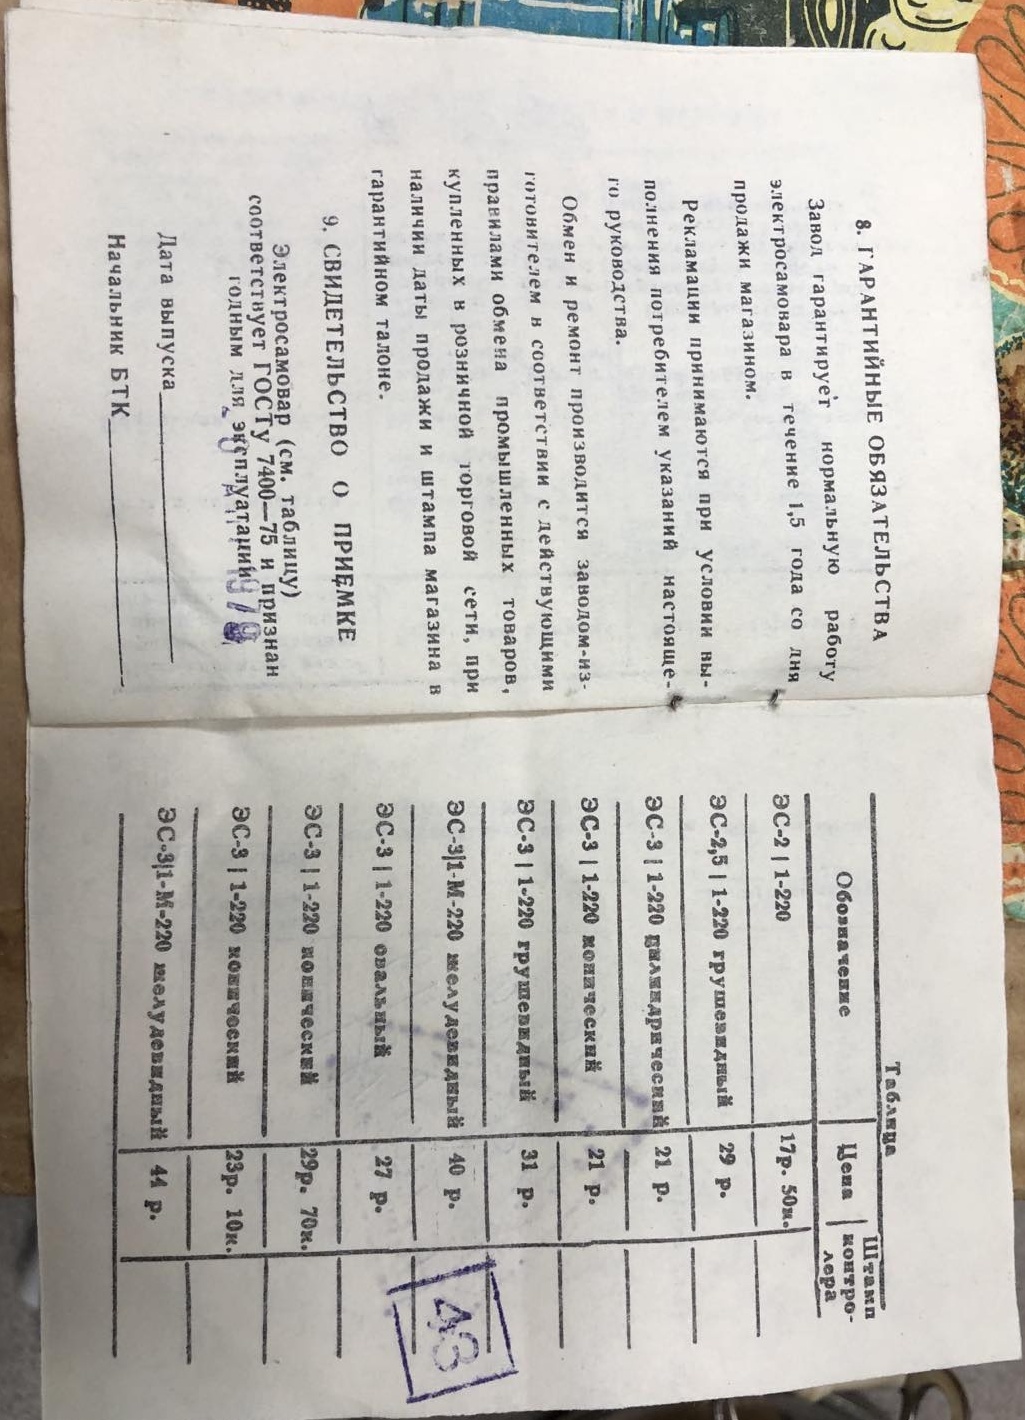 8. ГАРАНТИЙНЫЕ ОБЯЗАТЕЛЬСТВА
Завод гарантирует нормальную работу
электросамовара в течение 1,5 года со дня
продажи магазином.
Рекламации принимаются при условии вы-
полнения потребителем указаний настояще-
го руководства.
Обмен и ремонт производится заводом-из-
готовителем в соответствии с действующими
правилами обмена промышленных товаров,
купленных в розничной торговой сети, при
наличии даты продажи и штампа магазина в
гарантийном талоне.
9. СВИДЕТЕЛЬСТВО О ПРИЕМКЕ
Электросамовар (см. таблицу)
соответствует ГОСТу 7400—75 и признан
годным для эксплуатации
Дата выпуска
Начальник БТК
Таблица
Обозначение Цена Штамп
контро-
лера
ЭС-2 | 1-220 17р. 50к.
ЭС-2,5 | 1-220 грушевидный 29 р.
ЭС-3 | 1-220 цилиндрический 21 р.
ЭС-3 | 1-220 конический 21 р.
ЭС-3 | 1-220 грушевидный 31 р.
ЭС-3|1-М-220 желудевидный 40 р.
43
ЭС-3 | 1-220 овальный 27 р.
ЭС-3 | 1-220 конический 29р. 70к.
ЭС-3 | 1-220 конический 23р. 10к.
ЭС-3|1-М-220 желудевидный 44 р.